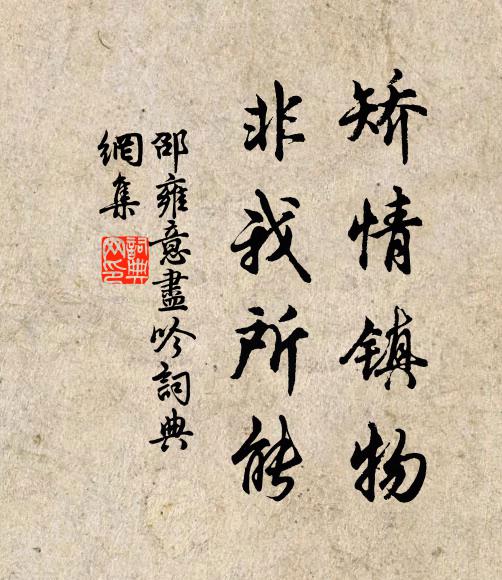 矫情镇物
非我所能
邵雍意盡吟詞典
網集
詞典
网印